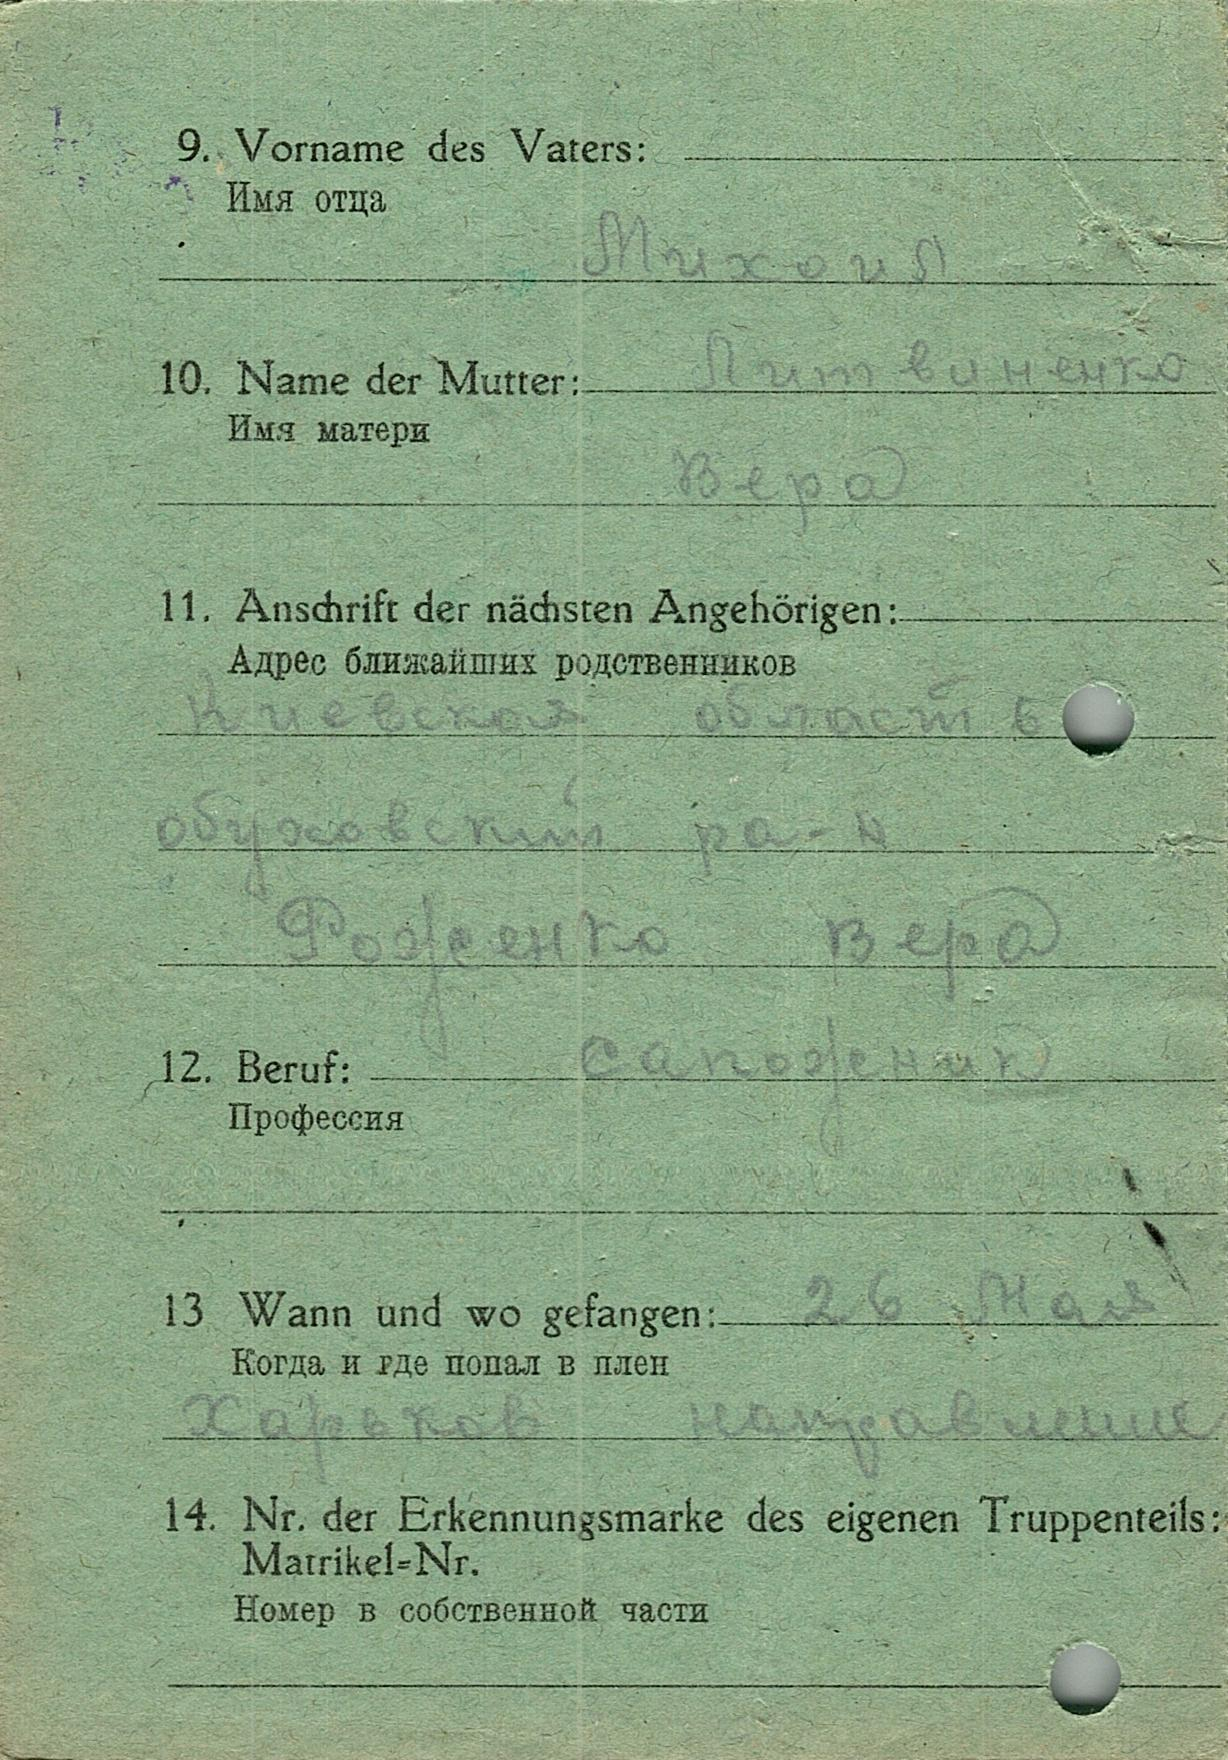 9. Vorname des Vaters:
Имя отца
Михаил
10. Name der Mutter: Литвиненко
Имя матери
Вера
11. Anschrift der nächsten Angehörigen:
Адрес ближайших родственников
Киевская область
обуховский ра-н
Фоженко Вера
12. Beruf: сапожник
Профессия
13 Wann und wo gefangen: 26 Мая
Когда и где попал в плен
Харьков направление
14. Nr. der Erkennungsmarke des eigenen Truppenteils:
Matrikel=Nr.
Номер в собственной части